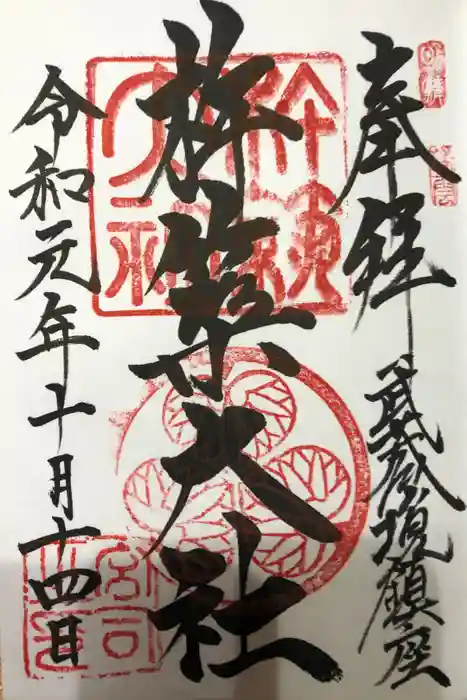 奉拝
武蔵境鎮座
杵築大社
令和元年十月十四日